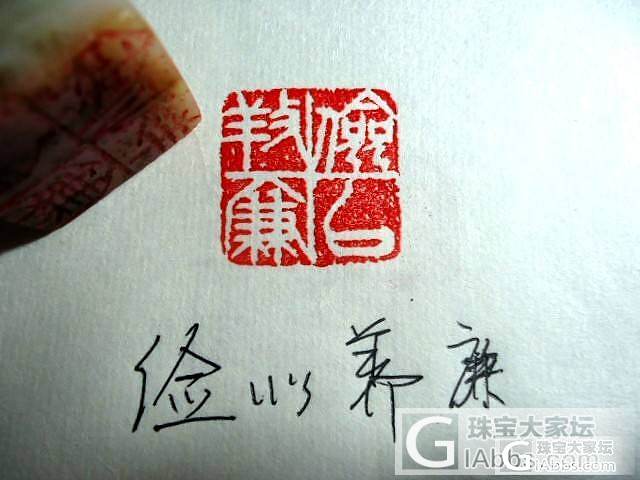 儉以
養廉
俭以养廉
珠宝大家坛
GIAbbs.com
珠宝大家坛
GIAbbs.com